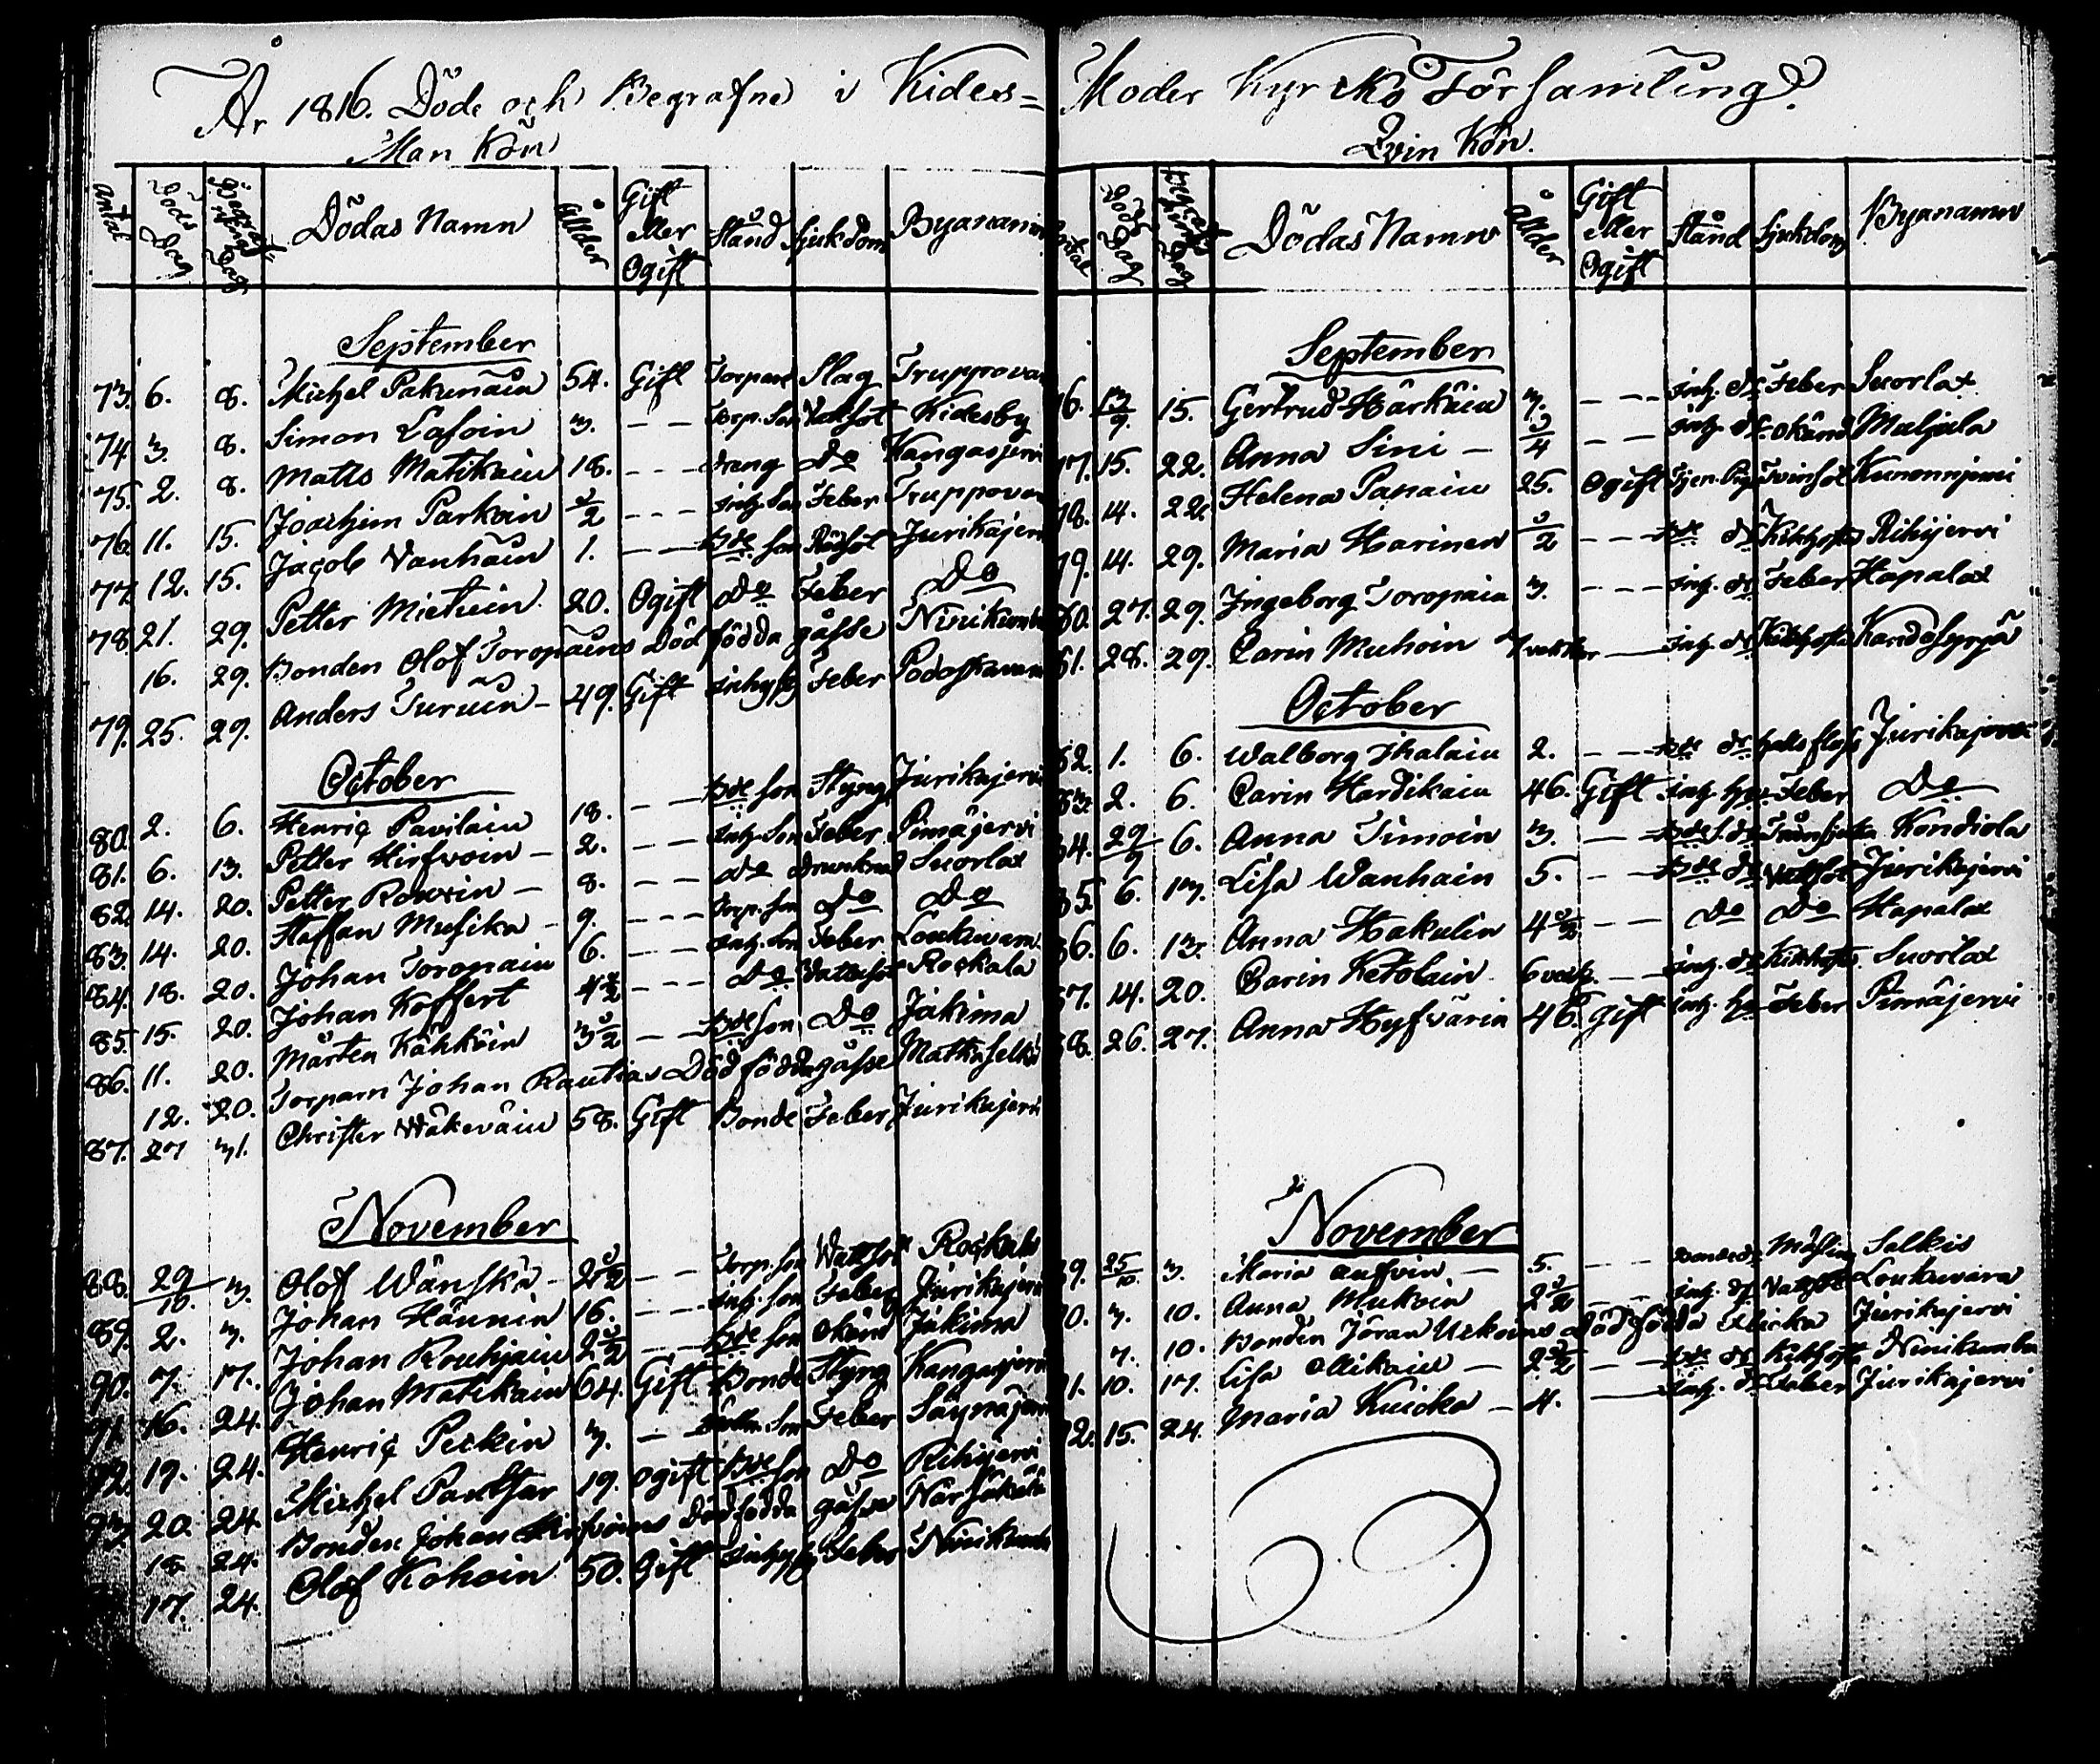 År 1816. Döde och Begrafne i Kides=
Man Kön
Antal Döds Dag Begrafnings Dag Dödas Namn Ållder Gift eller Ogift Stånd Sjukdom Byanamn
September
73. 6. 8. Michel Pakunain 54. Gift Torpare Slag Truppova
74. 3. 8. Simon Lasoin 3. - - Torp. Son Vatsot Kidesby
75. 2. 8. Matts Matikain 18. - - - dräng Do Kangasjervi
76. 11. 15. Joachim Parkoin 1/2 - - - Inh. Son Feber Truppova
77. 12. 15. Jacob Vanhain 1. - - Bde son Rödsot Jurikajer
78. 21. 29. Petter Mietuin 20. Ogift Do Feber Do
16. 29. Bonden Olof Toropains Död födda gåsse Niniku
79. 25. 29. Anders Turuin - 49. Gift Inhys Feber
October
80. 2. 6. Henric Pavilain 18. - - Bde son Styng Jurikajervi
81. 6. 13. Petter Hirfvoin - 2. - - Inh. Son Feber Pimäjervi
82. 14. 20. Petter - 8. - - Do Suorlax
83. 14. 20. Staffan Musika - 9. - - - Torp. son Do Do
84. 18. 20. Johan Toropain 6. - - Inh. son Feber Loukuvara
85. 15. 20. Johan Koffert 4 1/2 - - - Do Vattusot Rockala
86. 11. 20. Mårten Kähköin 3 1/2 - - Bde son Do Jakima
12. 20. Torparn Johan Rautias Död födda gåsse Matkaselkä
87. 27 31. Christer Wäkeväin 58. Gift Bonde Feber Jurikajervi
November
88. 29/10. 3. Olof Wänskä - 2 1/2 - - Torp. son Wattsot Rockala
89. 2. 3. Johan Hännin 16. - - Inh. son Feber Jurikajervi
90. 7. 17. Johan Rouhjain 2 1/2 - - Bde son Okänd Jakima
91. 16. 24. Johan Matikain 64. Gift Bonde Styng Kangasjervi
92. 19. 24. Henric Peckin 3. - - Son Feber Säynäjer
93. 20. 24. Michel Parthar 19. ogift Bde son Do Rihijervi
18. 24. Bonden Johan Hirfvoins död födda gåsse Närsäkälä
17. 24. Olof Kohoin 50. Gift Inhys Feber Niniku
Moder Kyrcko Församling
Qvin Kön.
Antal Döds Dag Begrafnings Dag Dödas Namn Ållder Gift eller Ogift Stånd Sjukdom Byanamn
September
76. 13/9. 15. Gertrud Härkäin 3. - - - Inh. dr Feber Suorlax
77. 15. 22. Anna Sini - 3/4 - - Inh. dr okänd Muljula
78. 14. 22. Helena Panain 25. Ogift Tjen. Pig Tvinsot Kunonnjemi
79. 14. 29. Maria Harinen 1/2 - - - Bde dr Kikhosta Rihijervi
80. 27. 29. Ingeborg Toropain 3. - - - Inh. dr Feber Hapalax
81. 28. 29. Carin Muhoin 7 veckor - Inh. dr Kikhosta Kandosyrjä
October
82. 1. 6. Walborg Ikalain 2. - - Bde dr halsfluss Jurikajervi
83. 2. 6. Carin Hardikain 46. Gift Inh. hu Feber Do
84. 29/9 6. Anna Timoin 3. - Kondiola
85. 6. 13. Lisa Wanhain 5. - Bde dr Vattsot Jurikajervi
86. 6. 13. Anna Hakulin 4 1/2 - - Do Do Hapalax
87. 14. 20. Carin Ketolain 6 veck. - Inh. dr Kikhosta Suorlax
88. 26. 27. Anna Hyfvärin 46. gift Inh. hu Feber Pimäjervi
November
89. 25/10 3. Maria Auffvin - 5. - - - Bonde dr Mässling Selkis
90. 3. 10. Anna Mukoin 2 1/2 - - Inh. dr Vattsot Loukuvara
7. 10. Bonden Jöran Uckoins död födda flicka Jurikajervi
91. 10. 17. Lisa Ollikain - 2 1/2 - - Bde dr Kikhosta Ninikumbu
92. 15. 24. Maria Kuicka - 4. - Inh. dr Feber Jurikajervi